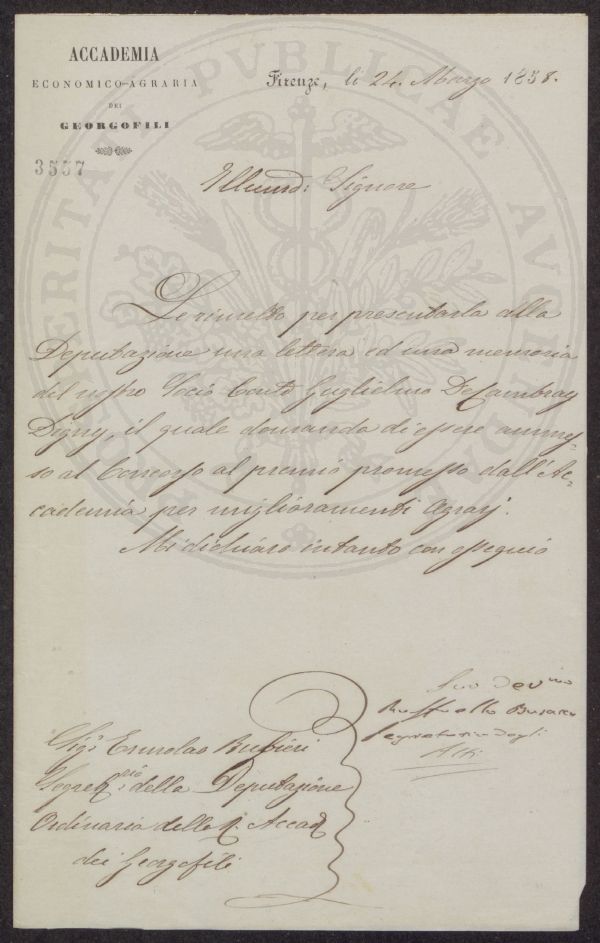 ACCADEMIA
ECONOMICO-AGRARIA
DEI
GEORGOFILI
3557
Firenze, li 24. Marzo 1858.
Signore
Le rimetto per presentarla alla
Deputazione una lettera ed una memoria
del nostro Socio Conte Guglielmo De Cambray
Digny, il quale domanda di essere ammes-
so al Concorso al premio promesso dall'Ac-
cademia per miglioramenti Agrarj.
Mi dichiaro intanto con ossequio
Suo Dev.mo
Segretario degli
Atti
Sig.r Ermolao Rubieri
Segret.rio della Deputazione
Ordinaria della R. Accad.
dei Georgofili
PROSPERITATI PVBLICAE AVGENDAE